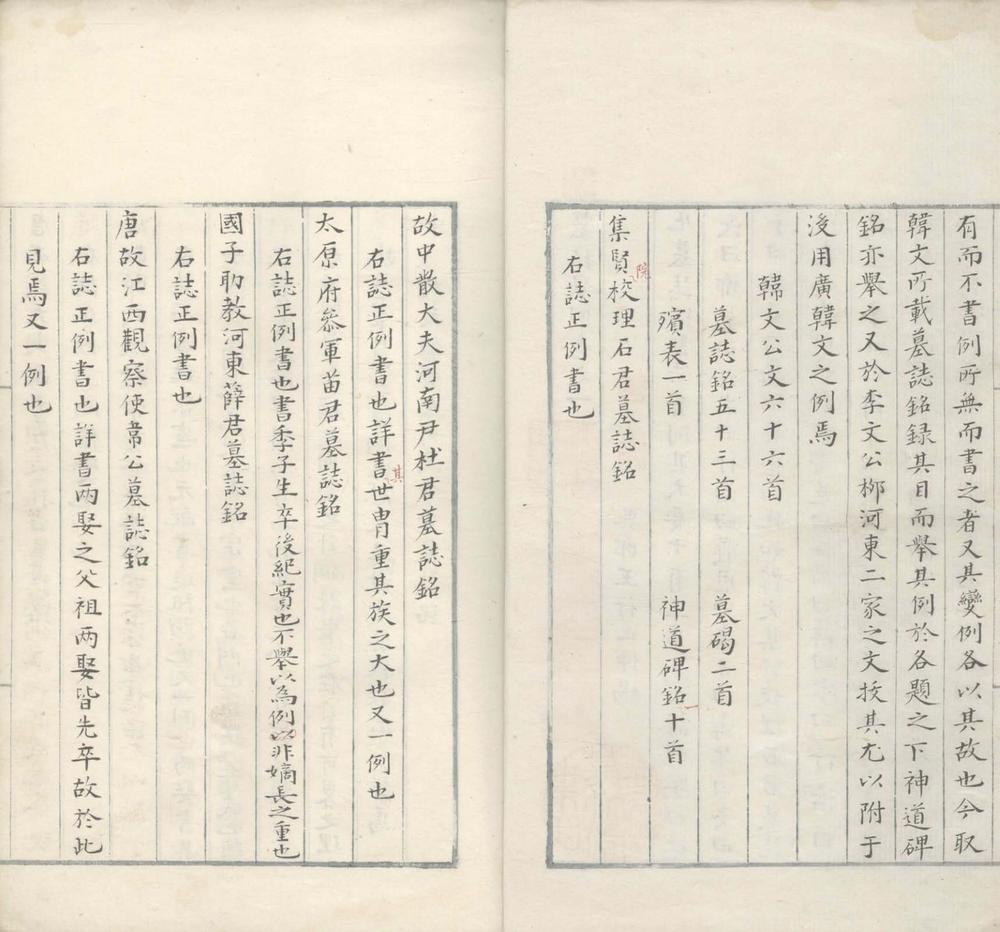 有而不書例所無而書之者又其變例各以其故也今取
韓文所載墓誌銘録其目而舉其例於各題之下神道碑
銘亦舉之又於李文公栁河東二家之文按其尤以附于
後用廣韓文之例焉
韓文公文六十六首
墓誌銘五十三首 墓碣二首
殯表一首 神道碑銘十首
集賢院校理石君墓誌銘
右誌正例書也
故中散大夫河南尹杜君墓誌銘
右誌正例書也詳書其世胄重其族之大也又一例也
太原府參軍苗君墓誌銘
右誌正例書也書季子生卒後紀實也不舉以為例以非嫡長之重也
國子助教河東薛君墓誌銘
右誌正例書也
唐故江西觀察使韋公墓誌銘
右誌正例書也詳書两娶之父祖两娶皆先卒故於此
見焉又一例也